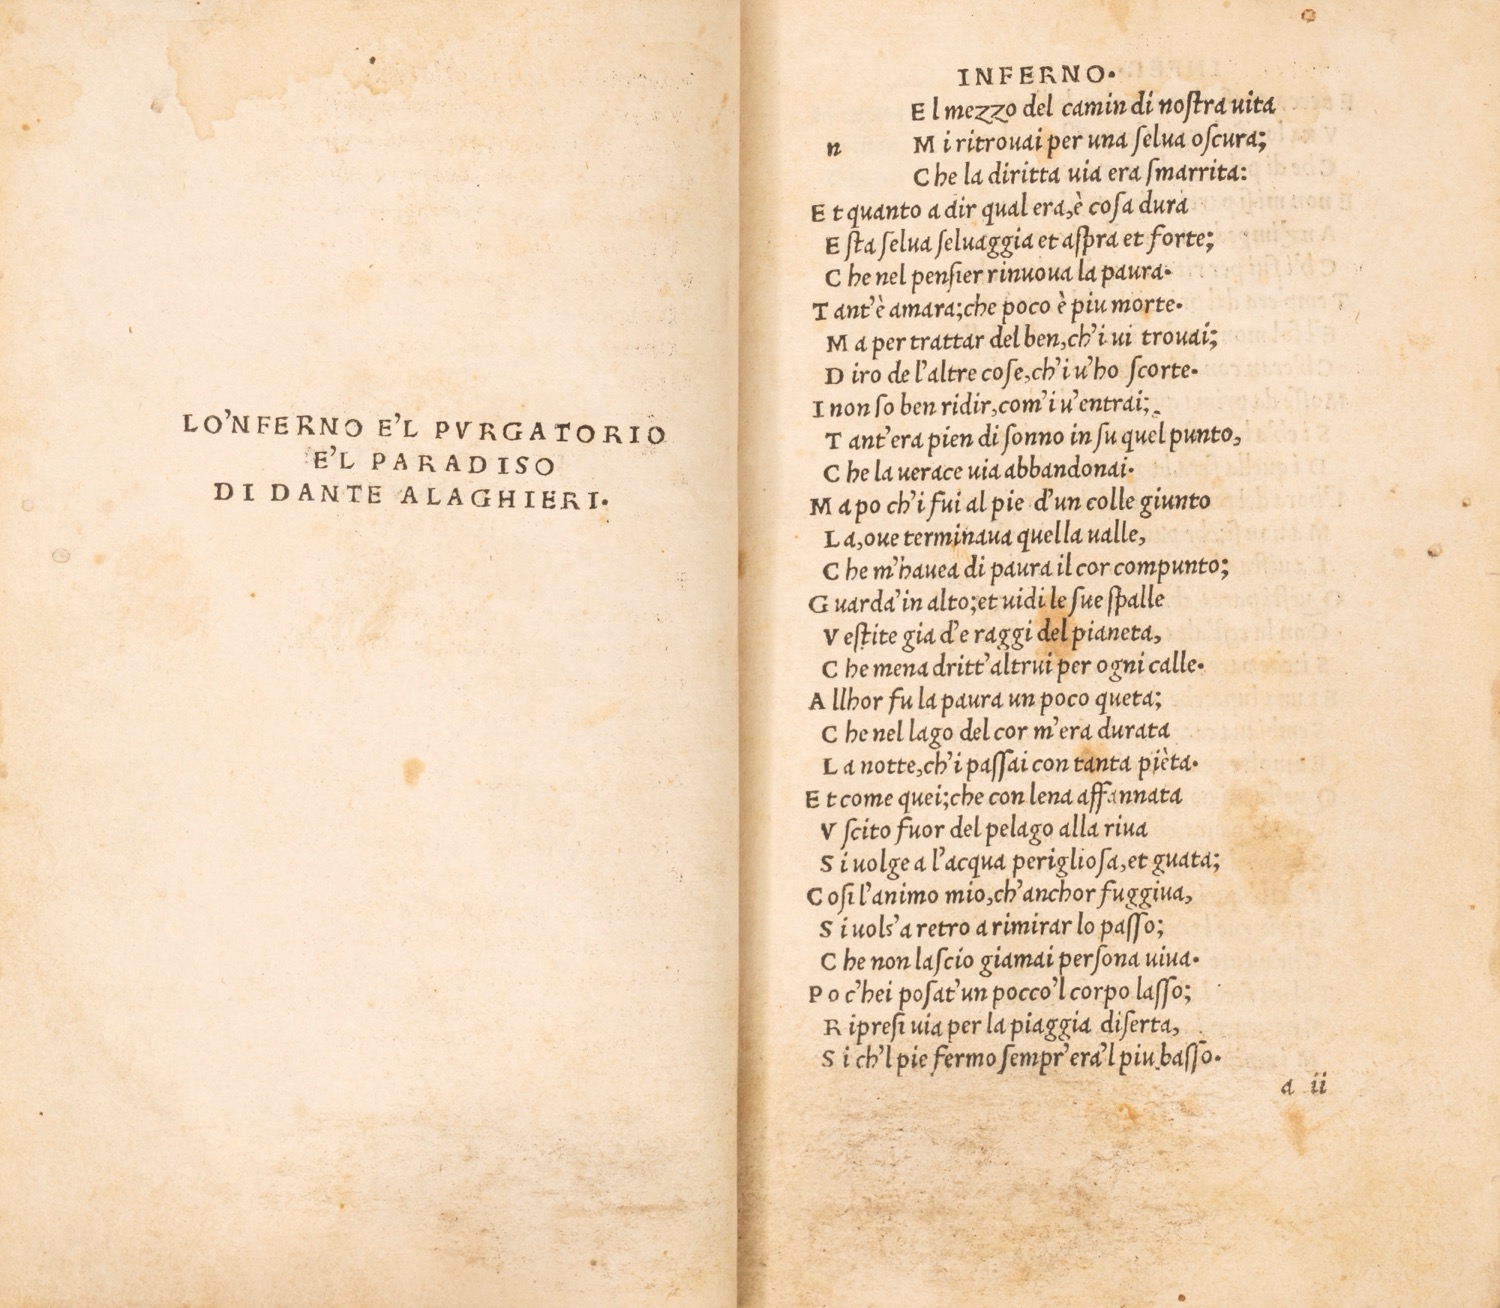 LO'NFERNO E'L PVRGATORIO
E'L PARADISO
DI DANTE ALAGHIERI.
INFERNO.
n
E l mezzo del camin di noſtra uita
M i ritrouai per una ſelua oſcura;
C he la diritta uia era ſmarrita:
E t quanto a dir qual era, è coſa dura
E ſta ſelua ſeluaggia et aſpra et forte;
C he nel penſier rinuoua la paura.
T ant'è amara; che poco è piu morte.
M a per trattar del ben, ch'i ui trouai;
D iro de l'altre coſe, ch'i u'ho ſcorte.
I non ſo ben ridir, com'i u'entrai;
T ant'era pien di ſonno in ſu quel punto,
C he la uerace uia abbandonai.
M a po ch'i fui al pie d'un colle giunto
L a, oue terminaua quella ualle,
C he m'hauea di paura il cor compunto;
G uarda'in alto; et uidi le ſue ſpalle
V eſtite gia d'e raggi del pianeta,
C he mena dritt'altrui per ogni calle.
A llhor fu la paura un poco queta;
C he nel lago del cor m'era durata
L a notte, ch'i paſſai con tanta pièta.
E t come quei; che con lena affannata
V ſcito fuor del pelago alla riua
S i uolge a l'acqua periglioſa, et guata;
C oſi l'animo mio, ch'anchor fuggiua,
S i uolſ'a retro a rimirar lo paſſo;
C he non laſcio giamai perſona uiua.
P o c'hei poſat'un pocco'l corpo laſſo;
R ipreſi uia per la piaggia diſerta,
S i ch'l pie fermo ſempr'era'l piu baſſo.
a ii